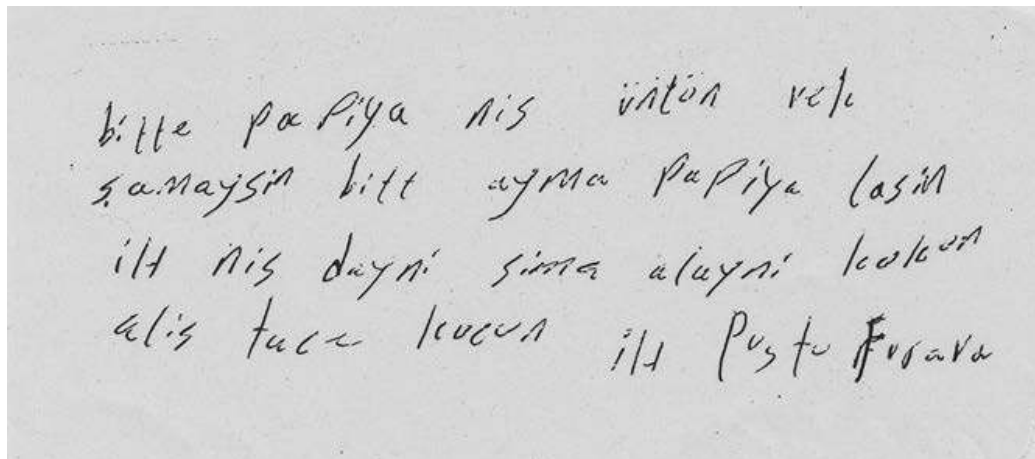 bitte papiya nis üntün vek
şamaysin bitt ayma papiya lasin
ilt nis dayni sima alayni kokun
alis tuca kucun ilt Pustu Frava